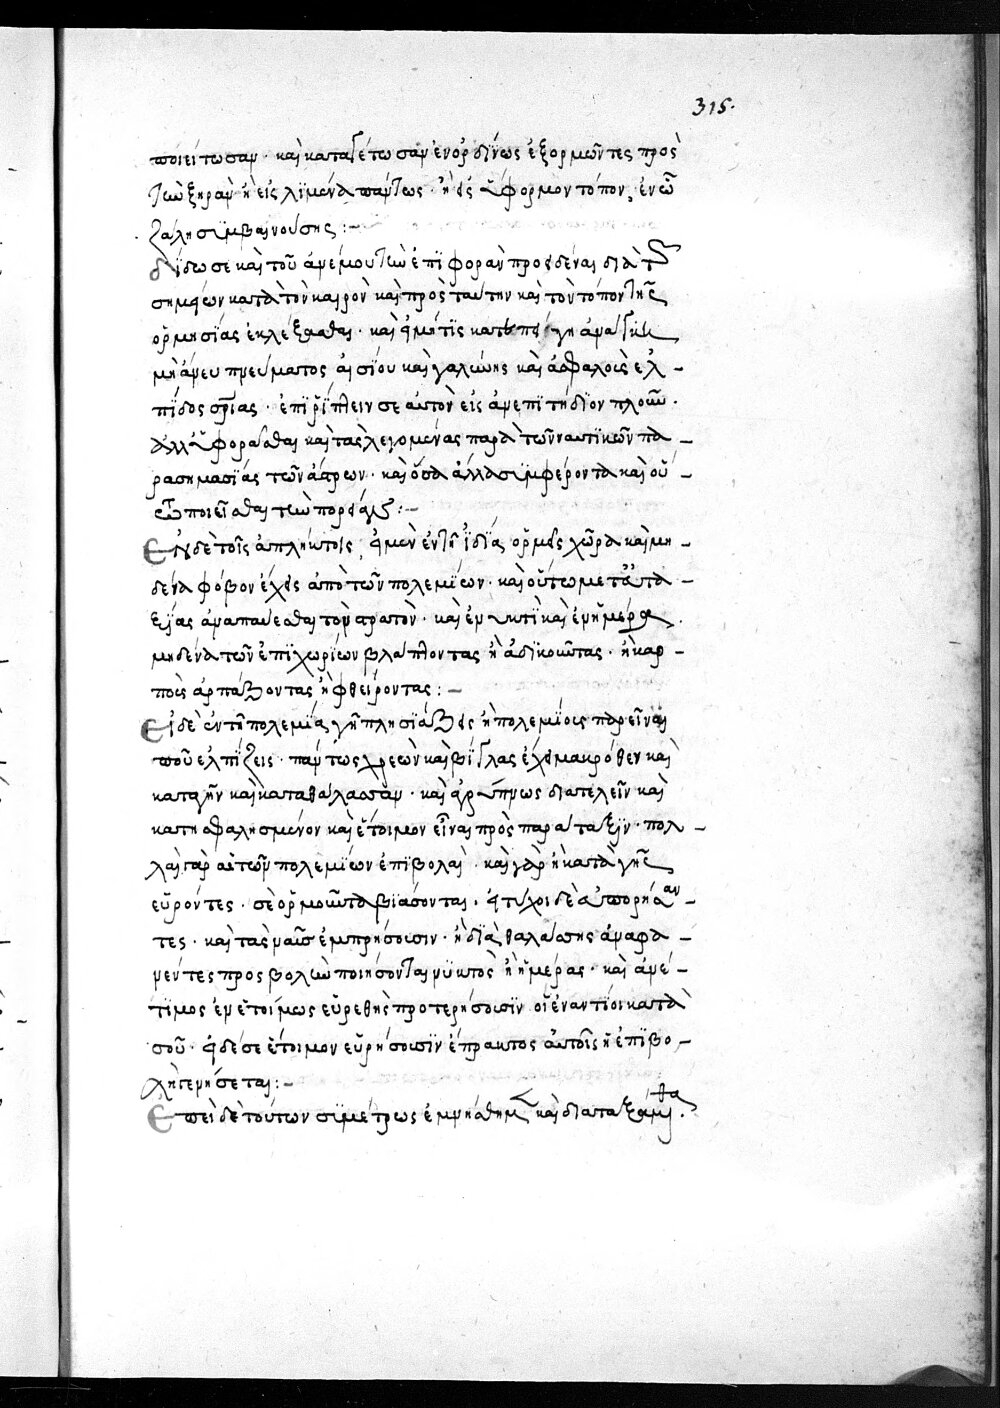 315.
ποιείτωσαν· καὶ καταγέτωσαν ἐνορδίνως ἐξορμῶντες πρὸς
τὴν ξηρὰν ἢ εἰς λϊμένα πάντως· ἢ εἰς ὕφορμον τόπον, ἐν ὧ
ζάλη συμβαινούσης:–
δίδωσε καὶ τοῦ ἀνέμου τὴν ἐπϊφορὰν προσιδέναι διὰ τῶν
σημείων κατὰ τὸν καιρὸν καὶ πρὸς ταύτην καὶ τὸν τόπον τῆς
ὁρμησίας ἐκλέξασθαι· καὶ εἰ μήτϊς κατεπείγη ἀνάγκη
μὴ ἄνευ πνεύματος αἰσίου καὶ γαλήνης καὶ ἀσφαλοὺς ἐλ–
πίδος σωτηρίας· ἐπϊρρίπτειν σε αὐτὸν εἰς ἀνεπϊτήδϊον πλοῦν·
ἀλλ' ὑφορᾶσθαι καὶ τὰς λεγομένας παρὰ τῶν ναυτϊκῶν πα–
ρασημασίας τῶν ἀστρων· καὶ ὅσα ἄλλα συμφέροντα καὶ οὕ–
τω ποιεῖσθαι τὴν πορείαν:–
Ἐν δὲ τοῖς ἀπλήκτοις, εἰ μὲν ἐν τῆ ϊδία ὁρμεῖς χῶρα καὶ μη–
δένα φόβον ἔχεις ἀπὸ τῶν πολεμίων· καὶ οὕτω μετ' εὐτα–
ξίας ἀναπαύεσθαι τὸν στρατὸν· καὶ ἐν νυκτϊ καὶ ἐν ἡμέρα·
μηδένα τῶν ἐπϊχωρίων βλάπτοντας ἢ ἀδϊκοῦντας· ἢ καρ–
ποὺς ἁρπάζοντας ἢ φθείροντας:–
Εἰ δὲ ἐν τῆ πολεμία γῆ πλησϊάζεις ἢ πολεμίοις παρεῖναι
ποῦ ἐλπίζεις· πάντως χρεὼν καὶ βίγλας ἔχειν μακρόθεν καὶ
κατὰ γῆν καὶ κατὰ θάλασσαν· καὶ ἀγρύπνως διατελεῖν καὶ
κατησφαλησμένον καὶ ἕτοιμον εἶναι πρὸς παράταξϊν· πολ–
λαὶ γὰρ αἱ τῶν πολεμίων ἐπϊβολαὶ· καὶ γὰρ ἢ κατὰ γῆς
εὑρόντες· σὲ ὁρμοῦντα βϊάσονται· εἰ τύχοι δὲ ἀπορήσαν–
τες· καὶ τὰς ναῦς ἐμπρήσουσιν· ἢ διὰ θαλάσσης ἀναφα–
νέντες προσβολὴν ποιήσονται νϋκτὸς ἢ ἡμέρας· καὶ ἀνέ–
τϊμος ἐν ἑτοίμως εὑρεθῆς προτερήσουσϊν οἱ ἐναντίοι κατὰ
σοῦ· εἰ δέ σε ἕτοιμον εὑρήσουσϊν ἔπρακτος αὐτοῖς ἡ ἐπϊβο–
λὴ γενήσεται:–
Ἐπεὶ δὲ τούτων συμμέτρως ἐμνήσθημεν καὶ διαταξάμεθα·